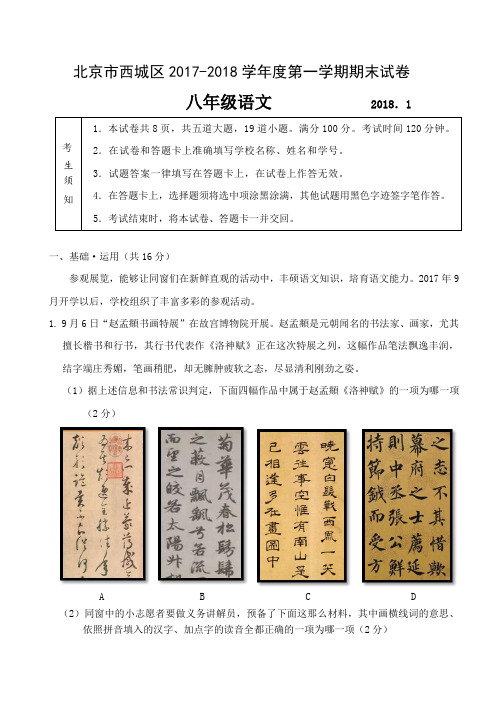 北京市西城区2017-2018学年度第一学期期末试卷
八年级语文 2018．1
考生须知
1．本试卷共8页，共五道大题，19道小题。满分100分。考试时间120分钟。
2．在试卷和答题卡上准确填写学校名称、姓名和学号。
3．试题答案一律填写在答题卡上，在试卷上作答无效。
4．在答题卡上，选择题须将选中项涂黑涂满，其他试题用黑色字迹签字笔作答。
5．考试结束时，将本试卷、答题卡一并交回。
一、基础·运用（共16分）
参观展览，能够让同窗们在新鲜直观的活动中，丰硕语文知识，培育语文能力。2017年9
月开学以后，学校组织了丰富多彩的参观活动。
1. 9月6日“赵孟頫书画特展”在故宫博物院开展。赵孟頫是元朝闻名的书法家、画家，尤其
擅长楷书和行书，其行书代表作《洛神赋》正在这次特展之列，这幅作品笔法飘逸丰润，
结字端庄秀媚，笔画稍肥，却无臃肿疲软之态，尽显清利刚劲之姿。
（1）据上述信息和书法常识判定，下面四幅作品中属于赵孟頫《洛神赋》的一项为哪一项
（2分）
荀華茂春松髣髴
之蔽月飄飄兮若流
而望之皎若太陽升朝
曉窓白髮戰西風一笑
雲往事空惟有南山是
已相逢多在畫圖中
之志不其惜歟
幕府之士薦延
則中丞張公鮮
持節鉞而受方
A B C D
（2）同窗中的小志愿者要做义务讲解员，预备了下面这那么材料，其中画横线词的意思、
依照拼音填入的汉字、加点字的读音全都正确的一项为哪一项（2分）